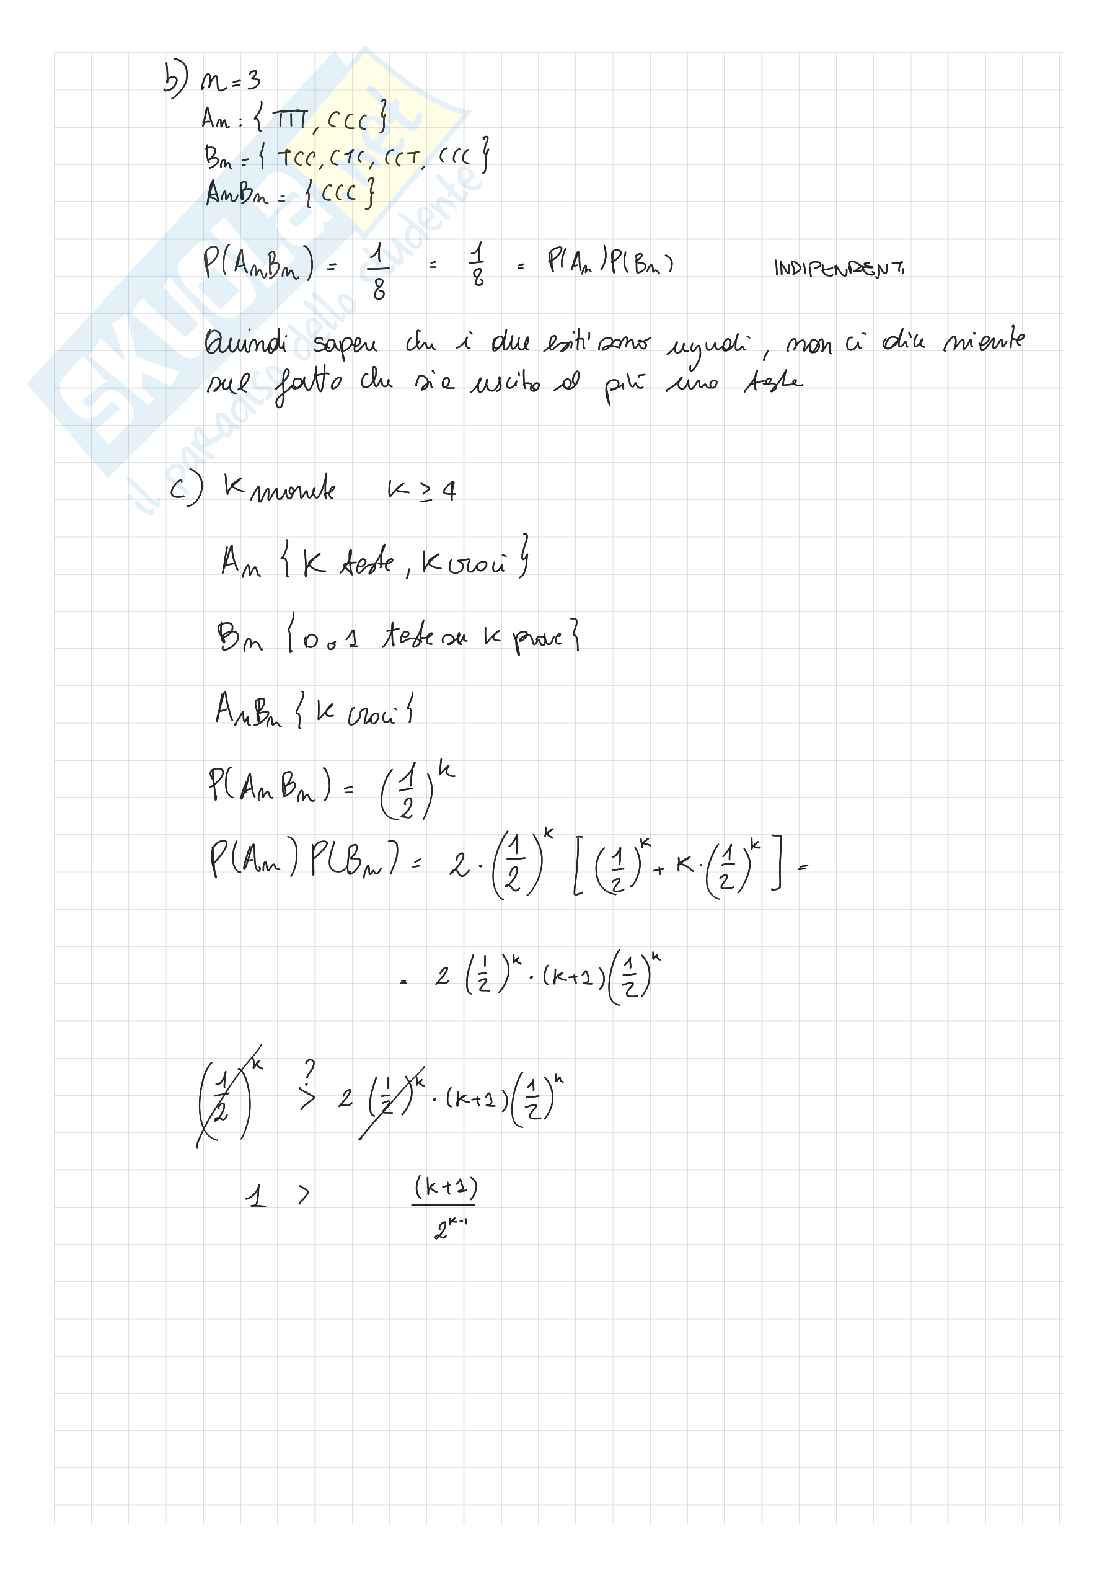 b) n=3
An: { TTT, CCC }
Bn = { TCC, CTC, CCT, CCC }
AnBn = { CCC }
P(AnBn) = 1/8 = 1/8 = P(An)P(Bn) INDIPENDENTI
Quindi sapere che i due esiti sono uguali, non ci dice niente
sul fatto che sia uscito al più una testa
c) K monete K ≥ 4
An { K teste, K croci }
Bn { 0 o 1 teste su K prove }
AnBn { K croci }
P(AnBn) = (1/2)^k
P(An) P(Bn) = 2 · (1/2)^k [ (1/2)^k + K · (1/2)^k ] =
= 2 (1/2)^k · (k+1) (1/2)^k
(1/2)^k >? 2 (1/2)^k · (k+1) (1/2)^k
1 > (k+1)/2^(k-1)
SKUOLA.net
il paradiso dello studente